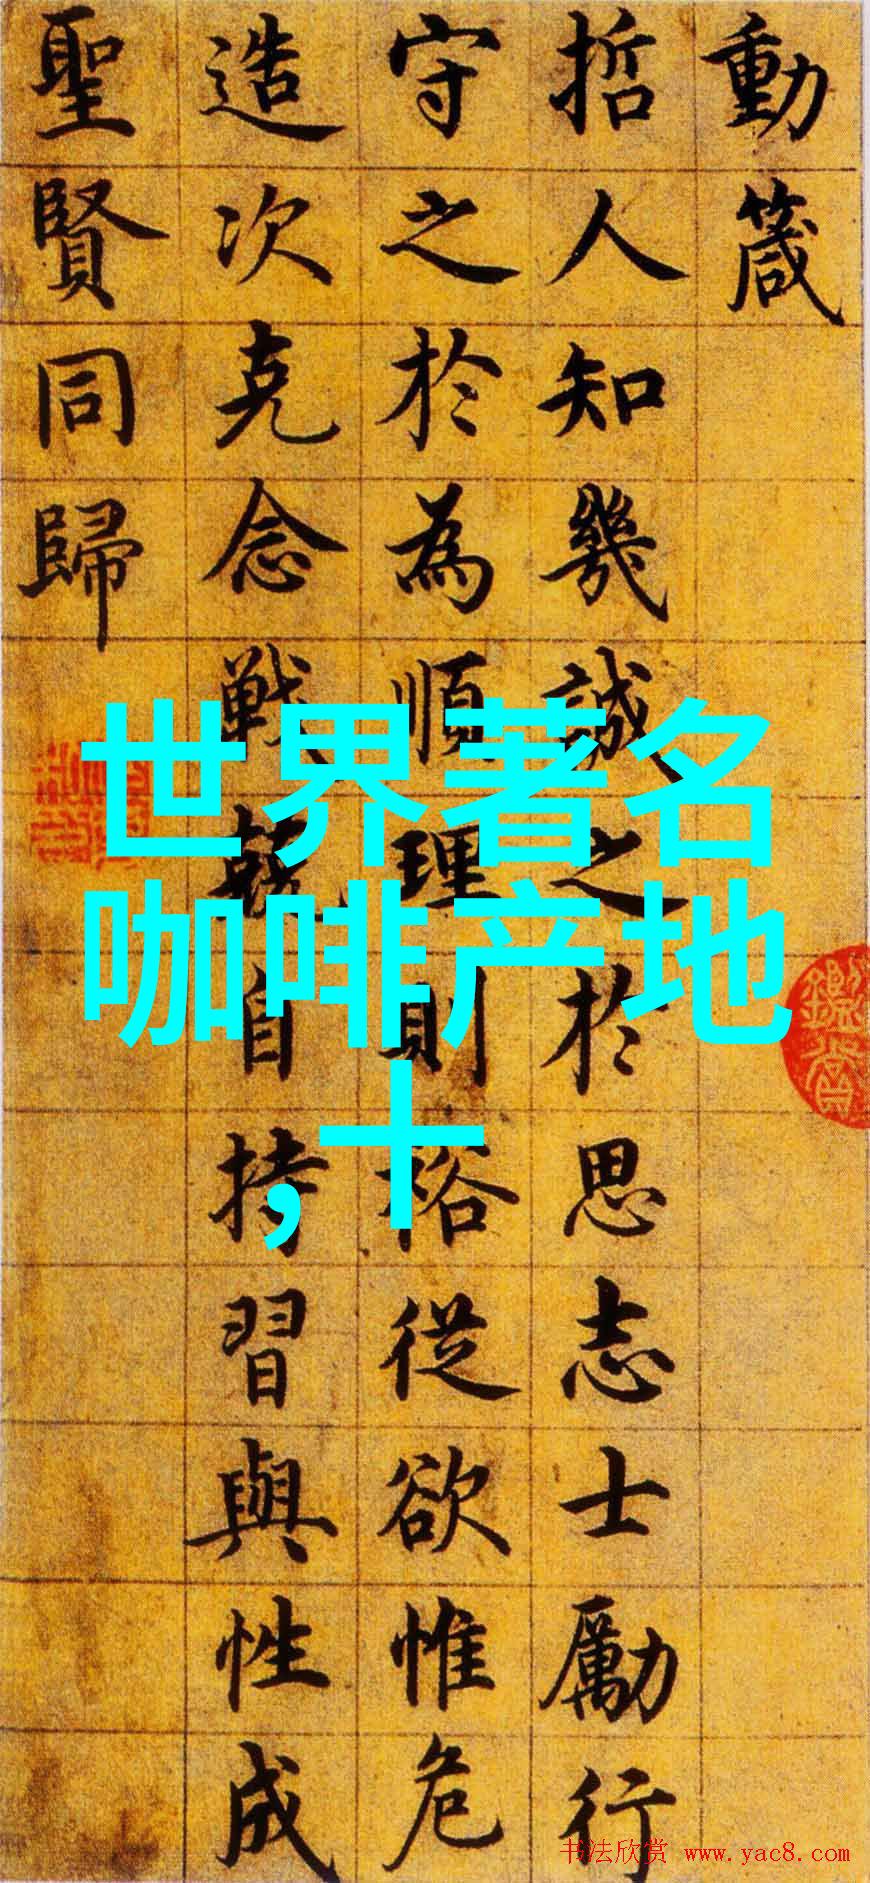 動箴
哲人知幾誠之於思志士厲行
守之於為順理則裕從欲惟危
造次克念戰兢自持習與性成
聖賢同歸
世界著名
咖啡产地
，十
书法欣赏 www.yac8.com